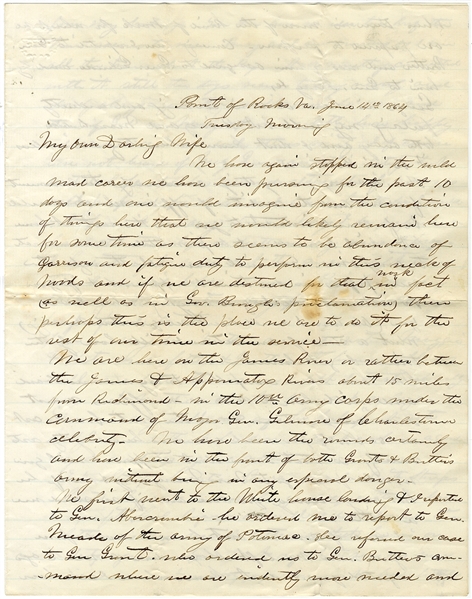 Point of Rocks Va. June 14th 1864
Tuesday Morning
My Own Darling Wife
We have again stopped in the wild
mad career we have been pursuing for the past 10
days and one would imagine from the condition
of things here that we would likely remain here
for some time as there seems to be abundance of
Garrison and fatigue duty to perform in this neck of
woods and if we are destined for that work in fact
(as well as in Gov. Brough's proclamation) then
perhaps this is the place we are to do it for the
rest of our time in the service—
We are here on the James River or rather between
the James & Appomattox Rivers about 15 miles
from Richmond — in the 10th Army Corps under the
command of Major Gen. Gilmore of Charlestown
celebrity. We have been the rounds certainly
and have been in the front of both Grants & Butlers
army without being in any exposed danger.
We first went to the White house landing & reported
to Gen. Abercrombie – he ordered me to report to Gen.
Meade of the army of Potomac. He referred our case
to Gen Grant. who ordered us to Gen. Butlers com-
mand where we are evidently more needed and